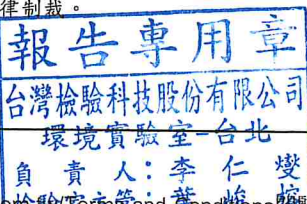 律制裁。
報告專用章
台灣檢驗科技股份有限公司
環境實驗室-台北
負責人：李仁燮